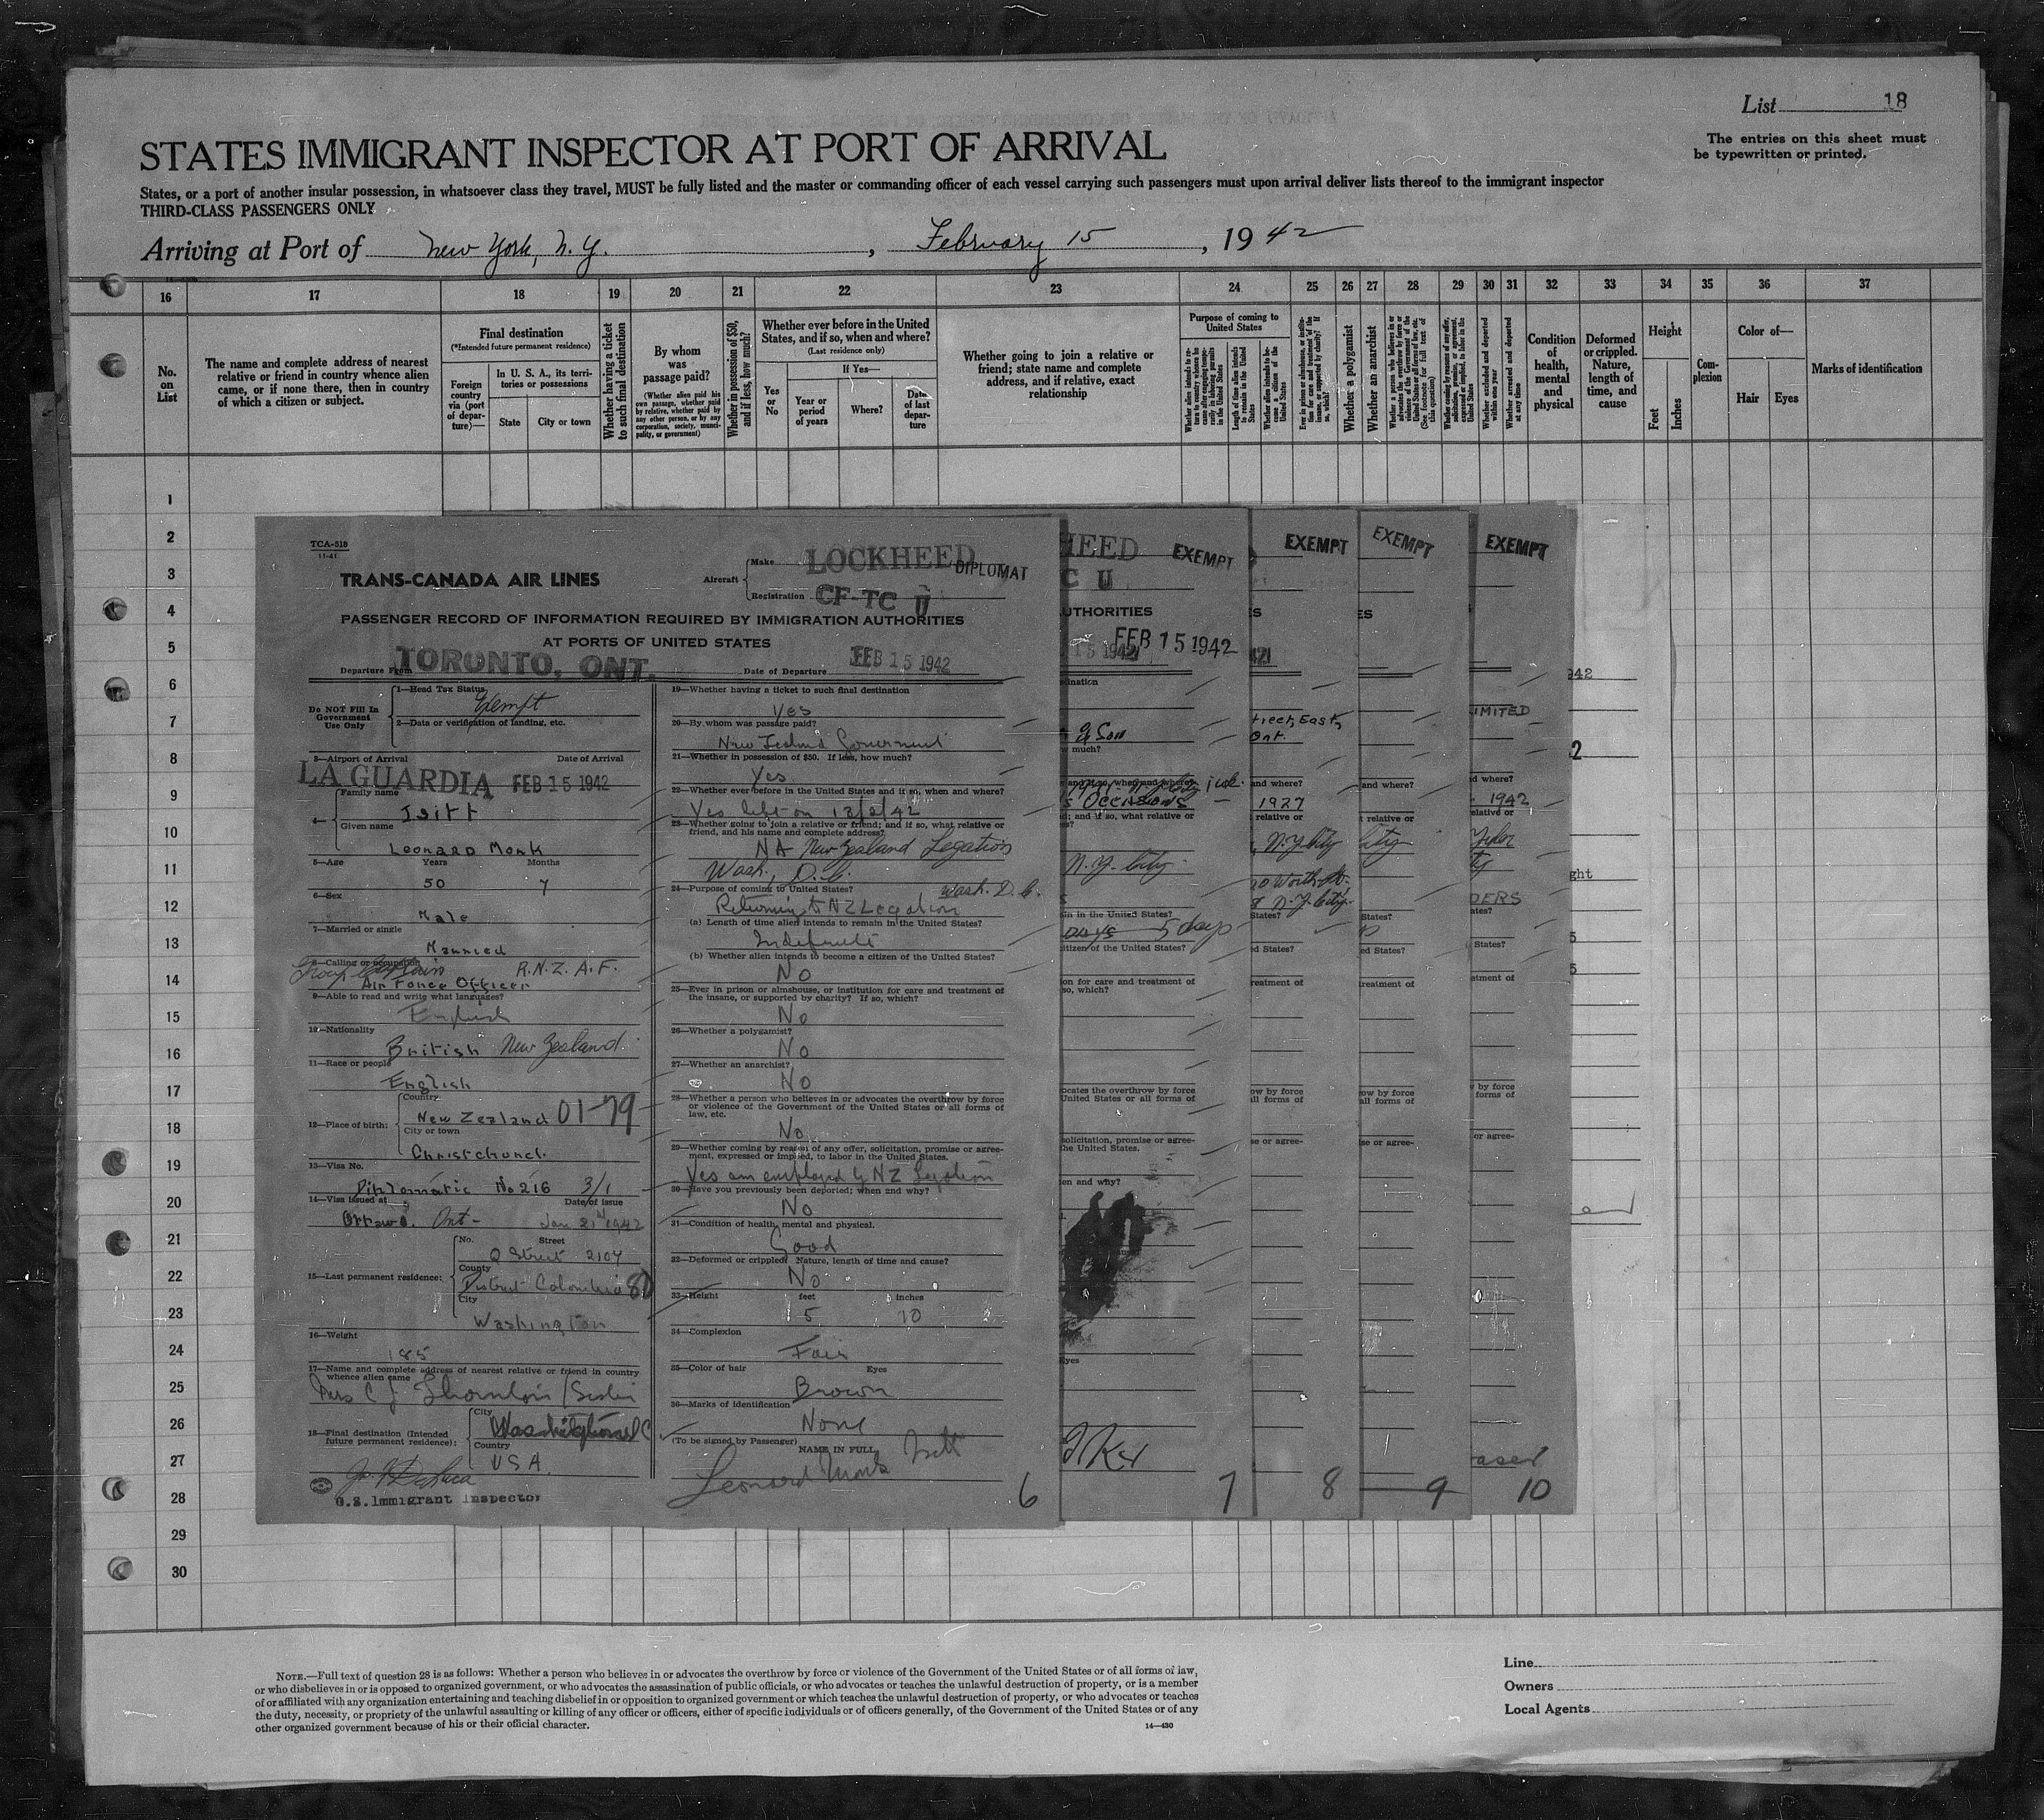 List 18
The entries on this sheet must
be typewritten or printed.
STATES IMMIGRANT INSPECTOR AT PORT OF ARRIVAL
States, or a port of another insular possession, in whatsoever class they travel, MUST be fully listed and the master or commanding officer of each vessel carrying such passengers must upon arrival deliver lists thereof to the immigrant inspector
THIRD-CLASS PASSENGERS ONLY
Arriving at Port of New York, N.Y., February 15, 1942
16 17 18 19 20 21 22 23 24 25 26 27 28 29 30 31 32 33 34 35 36 37
No. on List
The name and complete address of nearest
relative or friend in country whence alien
came, or if none there, then in country
of which a citizen or subject.
Final destination
(*Intended future permanent residence)
Foreign country via (port of departure)—
In U. S. A., its territories or possessions
State
City or town
Whether having a ticket to such final destination
By whom was passage paid?
(Whether alien paid his own passage, whether paid by relative, whether paid by any other person, or by any corporation, society, municipality, or government)
Whether in possession of $50, and if less, how much?
Whether ever before in the United States, and if so, when and where?
(Last residence only)
If Yes—
Yes or No
Year or period of years
Where?
Date of last departure
Whether going to join a relative or
friend; state name and complete
address, and if relative, exact
relationship
Purpose of coming to United States
Length of time alien intends to remain in the United States
Whether alien intends to become a citizen of the United States
Whether a polygamist
Whether an anarchist
Whether excluded and deported within one year
Whether arrested and deported at any time
Condition of health, mental and physical
Deformed or crippled. Nature, length of time, and cause
Height
Feet
Inches
Complexion
Color of—
Hair
Eyes
Marks of identification
1
2
3
4
5
6
7
8
9
10
11
12
13
14
15
16
17
18
19
20
21
22
23
24
25
26
27
28
29
30
TCA-518
11-41
TRANS-CANADA AIR LINES
Aircraft
Make LOCKHEED
DIPLOMAT
Registration CF-TC U
PASSENGER RECORD OF INFORMATION REQUIRED BY IMMIGRATION AUTHORITIES
AT PORTS OF UNITED STATES
Departure From TORONTO, ONT.
Date of Departure FEB 15 1942
Do NOT Fill In
Government
Use Only
1—Head Tax Status
Exempt
2—Data or verification of landing, etc.
3—Airport of Arrival Date of Arrival
LA GUARDIA FEB 15 1942
4—
Family name
Isitt
Given name
Leonard Monk
5—Age Years Months
50 7
6—Sex
Male
7—Married or single
Married
8—Calling or occupation
Group Captain R.N.Z.A.F.
Air Force Officer
9—Able to read and write what languages?
English
10—Nationality
British New Zealand
11—Race or people
English
12—Place of birth:
Country
New Zealand 01-79
City or town
Christchurch
13—Visa No.
Diplomatic No 216 3/1
14—Visa issued at Date of issue
Ottawa. Ont- Jan 21st 1942
15—Last permanent residence:
No. Street
Q Street 2107
County
District Colombia
City
Washington
16—Weight
185
17—Name and complete address of nearest relative or friend in country
whence alien came
Mrs C J Thornton / Sister
18—Final destination (Intended
future permanent residence):
City
Washington D C
Country
USA
U.S. Immigrant Inspector
19—Whether having a ticket to such final destination
Yes
20—By whom was passage paid?
New Zealand Government
21—Whether in possession of $50. If less, how much?
Yes
22—Whether ever before in the United States and if so, when and where?
Yes left on 13/2/42
23—Whether going to join a relative or friend; and if so, what relative or
friend, and his name and complete address?
NA New Zealand Legation
Wash., D.C.
24—Purpose of coming to United States? Wash. D.C.
Returning to NZ Legation
(a) Length of time alien intends to remain in the United States?
Indefinite
(b) Whether alien intends to become a citizen of the United States?
No
25—Ever in prison or almshouse, or institution for care and treatment of
the insane, or supported by charity? If so, which?
No
26—Whether a polygamist?
No
27—Whether an anarchist?
No
28—Whether a person who believes in or advocates the overthrow by force
or violence of the Government of the United States or all forms of
law, etc.
No
29—Whether coming by reason of any offer, solicitation, promise or agree-
ment, expressed or implied, to labor in the United States.
Yes am employed by NZ Legation
30—Have you previously been deported; when and why?
No
31—Condition of health, mental and physical.
Good
32—Deformed or crippled? Nature, length of time and cause?
No
33—Height feet inches
5 10
34—Complexion
Fair
35—Color of hair Eyes
Brown
36—Marks of identification
None
(To be signed by Passenger) NAME IN FULL
Leonard Monk Isitt
6
HEED EXEMPT
C U
UTHORITIES
15 1942 FEB 15 1942
& Son
S OCCASIONS
N.Y. City
5 days
7
EXEMPT
treet, East,
Ont.
and where?
1927
N.Y. City
20 Worth St.
N.Y. City
8
EXEMPT
and where?
City
9
EXEMPT
IMITED
1942
DERS
10
942
2
ght
5
5
NOTE.—Full text of question 28 is as follows: Whether a person who believes in or advocates the overthrow by force or violence of the Government of the United States or of all forms of law,
or who disbelieves in or is opposed to organized government, or who advocates the assassination of public officials, or who advocates or teaches the unlawful destruction of property, or is a member
of or affiliated with any organization entertaining and teaching disbelief in or opposition to organized government or which teaches the unlawful destruction of property, or who advocates or teaches
the duty, necessity, or propriety of the unlawful assaulting or killing of any officer or officers, either of specific individuals or of officers generally, of the Government of the United States or of any
other organized government because of his or their official character.
14—430
Line
Owners
Local Agents